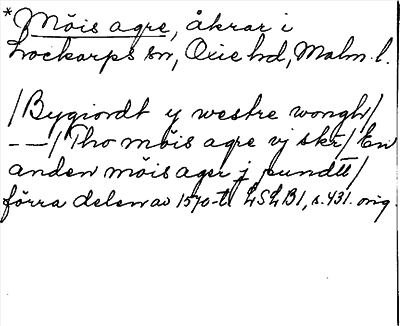 * Möis agre, åkrar i
Lockarps sn, Oxie hd, Malm. l.
/Bygiordt y westre wongh/
– – / Tho möis agre vj skr/ En
anden möis ager j pundtt/
förra delen av 1570-t. LSLB1, s. 431. orig.